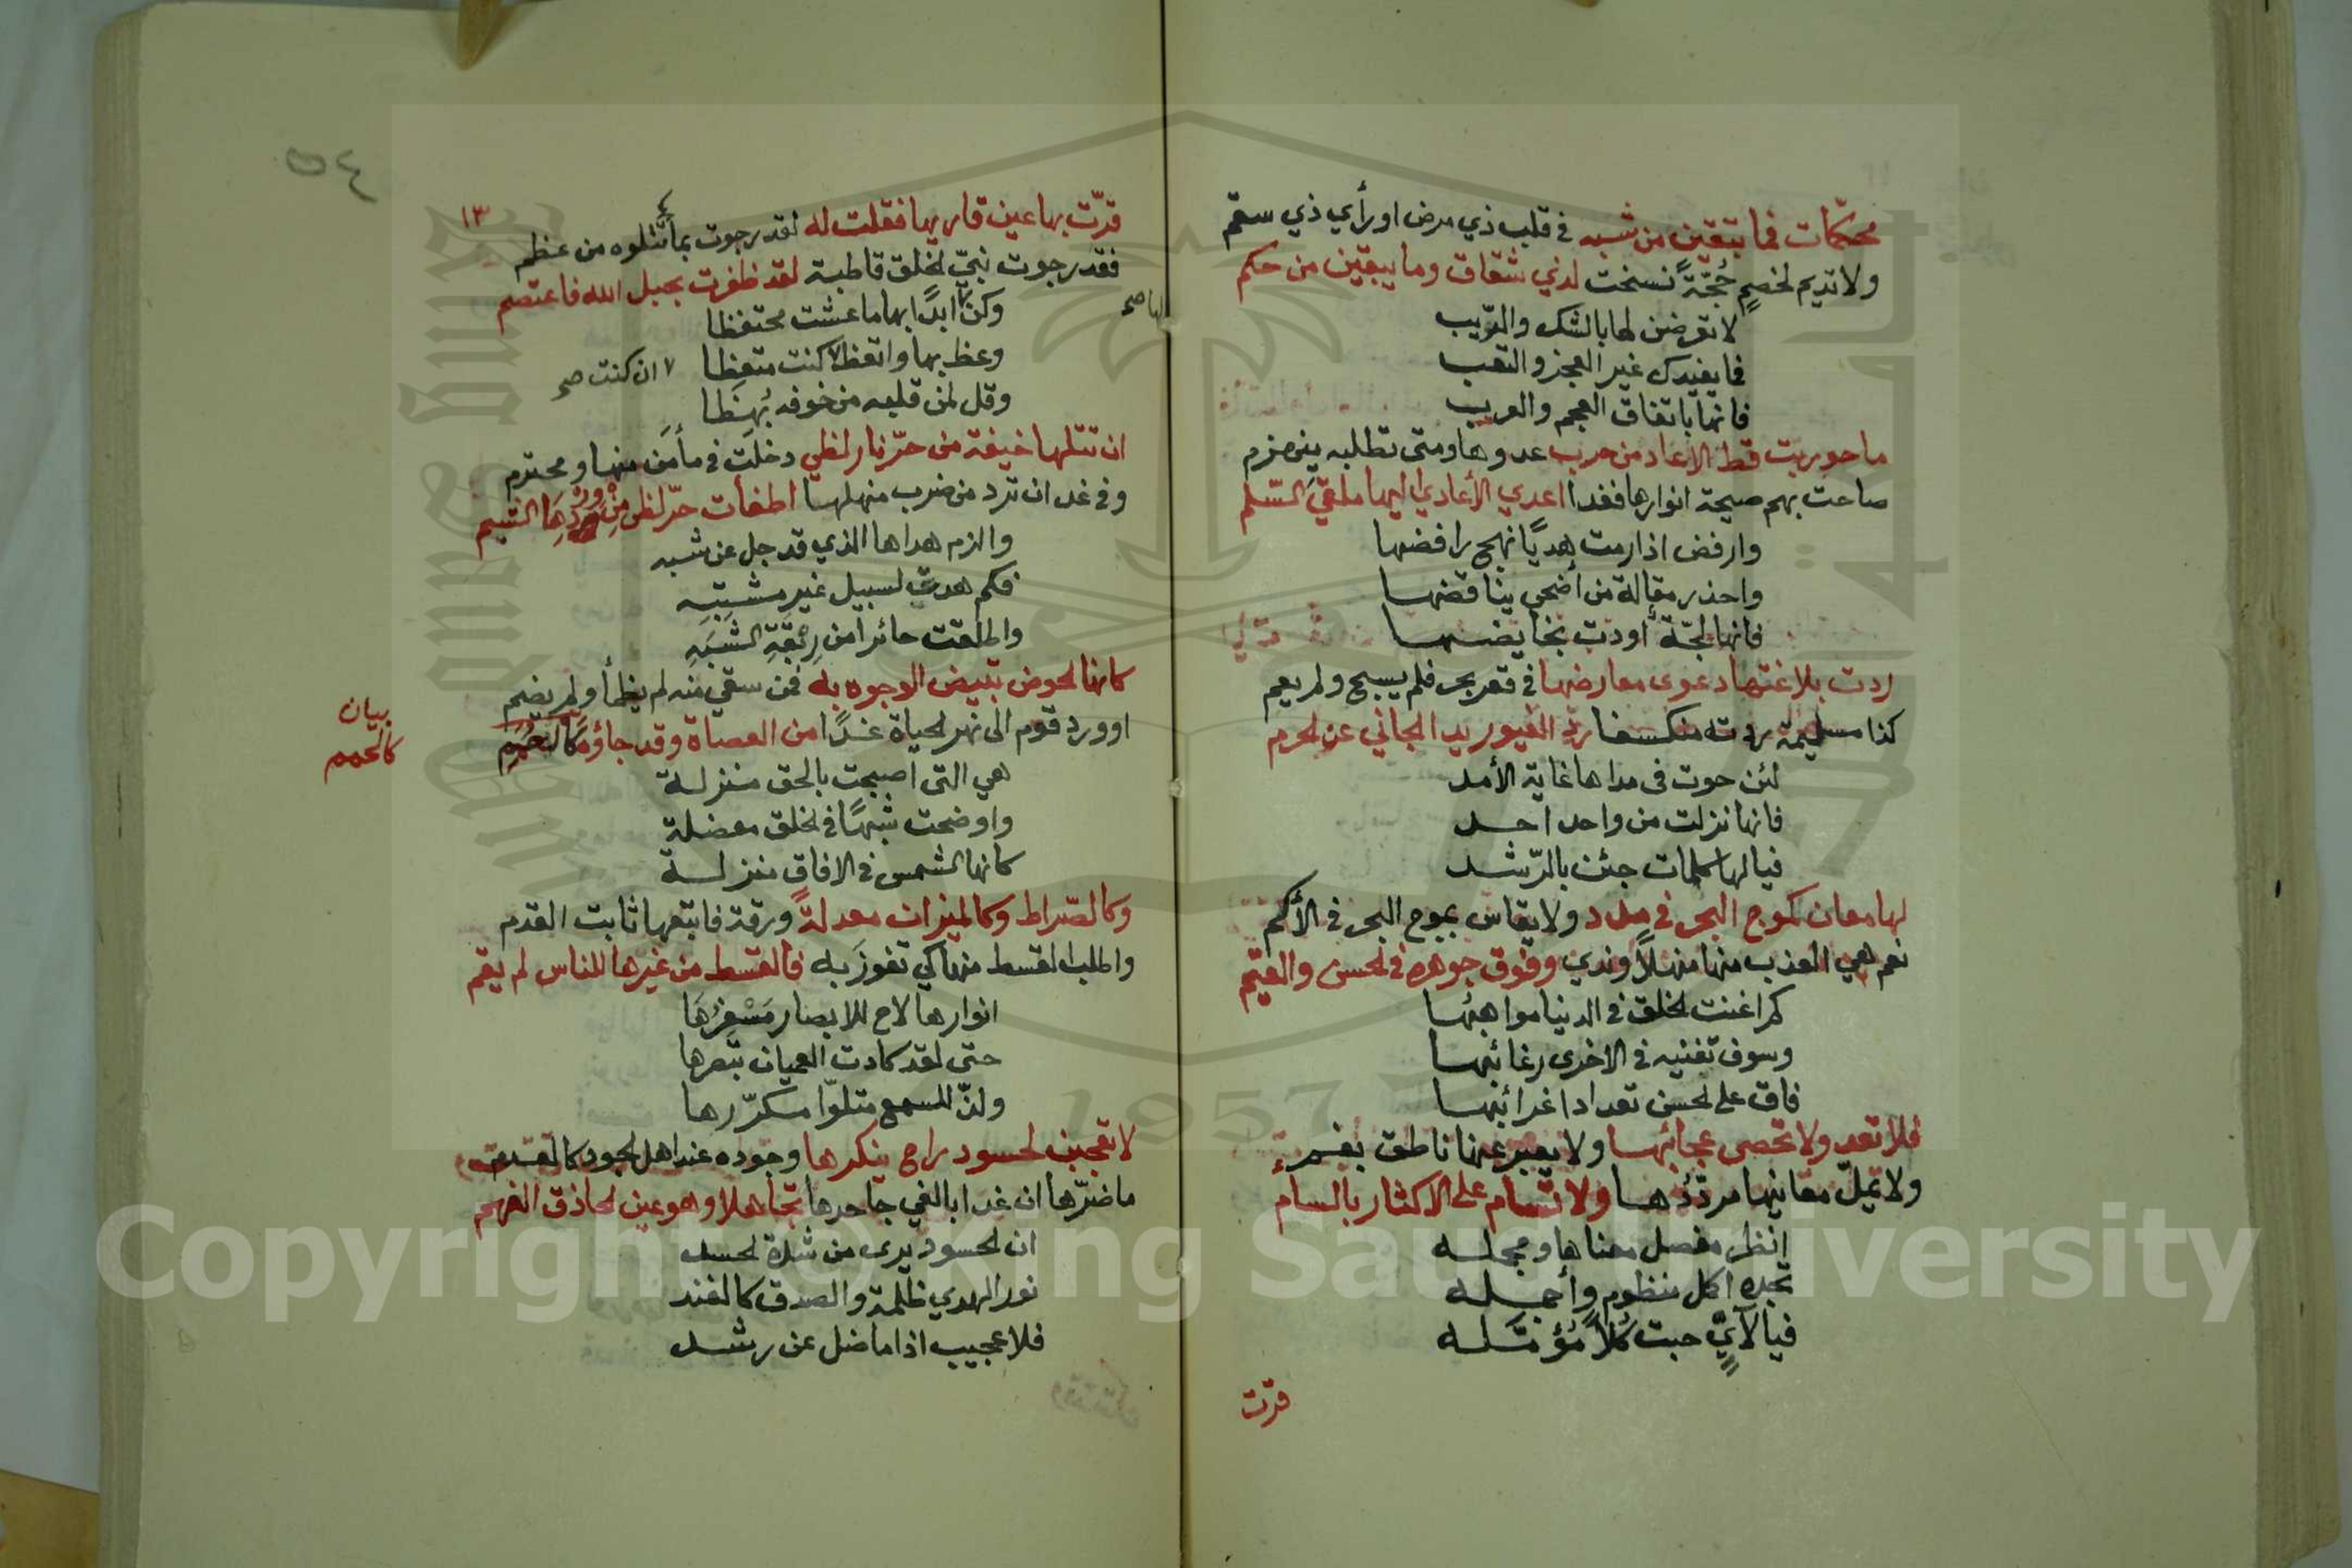 محكمات فما تبقين من شبه في قلب ذي مرض او رأي ذي سقم
ولا تديم لخصم حُجّةً نسخت لذي شقاق وما يبقين من حكم
لا تعرضن لها بالشك والرّيب
فما يفيدك غير العجز والتعب
فانها باتفاق العجم والعرب
ما حوربت قط الا عاد من حرب عدوها ومتى تطلبه ينهزم
صاحت بهم صيحة انوارها فغدا اعدي الأعادي اليها ملقيَ السّلم
وارفض اذا رمت هديًا نهج رافضها
واحذر مقالة من أضحى يناقضها
فانها لجّة أودت بخايضها
ردت بلاغتها دعوى معارضها في قعر بحر فلم يسبح ولم يعم
كذا مسليمة ردته منكسفا ردّ الغيور يد الجاني عن الحرم
لئن حوت في مداها غاية الأمد
فانها نزلت من واحد احد
فيالها كلمات جئن بالرّشد
لها معان كموج البحر في مدد ولا يقاس بموج البحر في الأكم
نعم هي العذب منها منهلاً وندي وفوق جوهره في الحسن والقيم
كم اغنت الخلق في الدنيا مواهبُها
وسوف تغنيه في الاخرى رغائبها
فاق على الحسن تعدادا غرائبها
فلا تعد ولا تحصى عجائبها ولا يعبر عنها ناطق بفم
ولا تملّ معانيها مردّدُها ولا تسام على الاكثار بالسام
انظر مفصل معناها ومجمله
تجده اكمل منظوم وأجمله
فيالآيٍ حبت كُلاًّ مُؤمّله
قرت
٥٤
١٣
قرّت بها عين قاريها فقلت له لقد رجوت بما تتلوه من عظم
فقد رجوت نبيّ الخلق قاطبة لقد ظفرت بحبل الله فاعتصم
وكن ابدًا بها ما عشت محتفظا
وعظ بها واتعظ لا كنت متعِظا
ان كنت صح
وقل لمن قلبه من خوفه بُهِظا
ان تتلها خيفة من حرّ نار لظى دخلت في مأمَن منها ومحترم
وفي غد ان ترد من ضرب منهلها اطفات حرّ لظى مِنْ وِرْدِهَا الشبم
والزم هداها الذي قد جل عن شبه
فكم هدت لسبيل غير مشتبِه
واطلقت حائرا من رِبْقَةِ الشَبَهِ
كانها الحوض تبيض الوجوه به فمن سقي منه لم يظمأ ولم يضم
او ورد قوم الى نهر الحياة غدًا من العصاة وقد جاؤه كَالحُمَمِ
بيان
كالحمم
هي التي اصبحت بالحق منزلة
واوضحت شبهًا في الخلق معضلة
كانها الشمس في الافاق منزلة
وكالصّراط وكالميزان معدلةً ورقة فاتبعها ثابت القدم
واطلب القسط منها كي تفوزَ به فالقسط من غيرها للناس لم يقم
انوارها لاح للابصار مَسْفِرُهَا
حتى لقد كادت العميان تبصرها
ولذّ للسمع متلوّا مكرّرها
لا تعجبن لحسود راح ينكرها وجوده عند اهل الجود كالعدم
ما ضرّها ان غدا بالغي جاحدها تجاهلا وهو عين الحاذق الفهم
ان الحسود يرى من شدة الحسد
نور الهدي ظلمة والصدق كالفند
فلا عجيب اذا ما ضل عن رشد
Copyright © King Saud University
1957